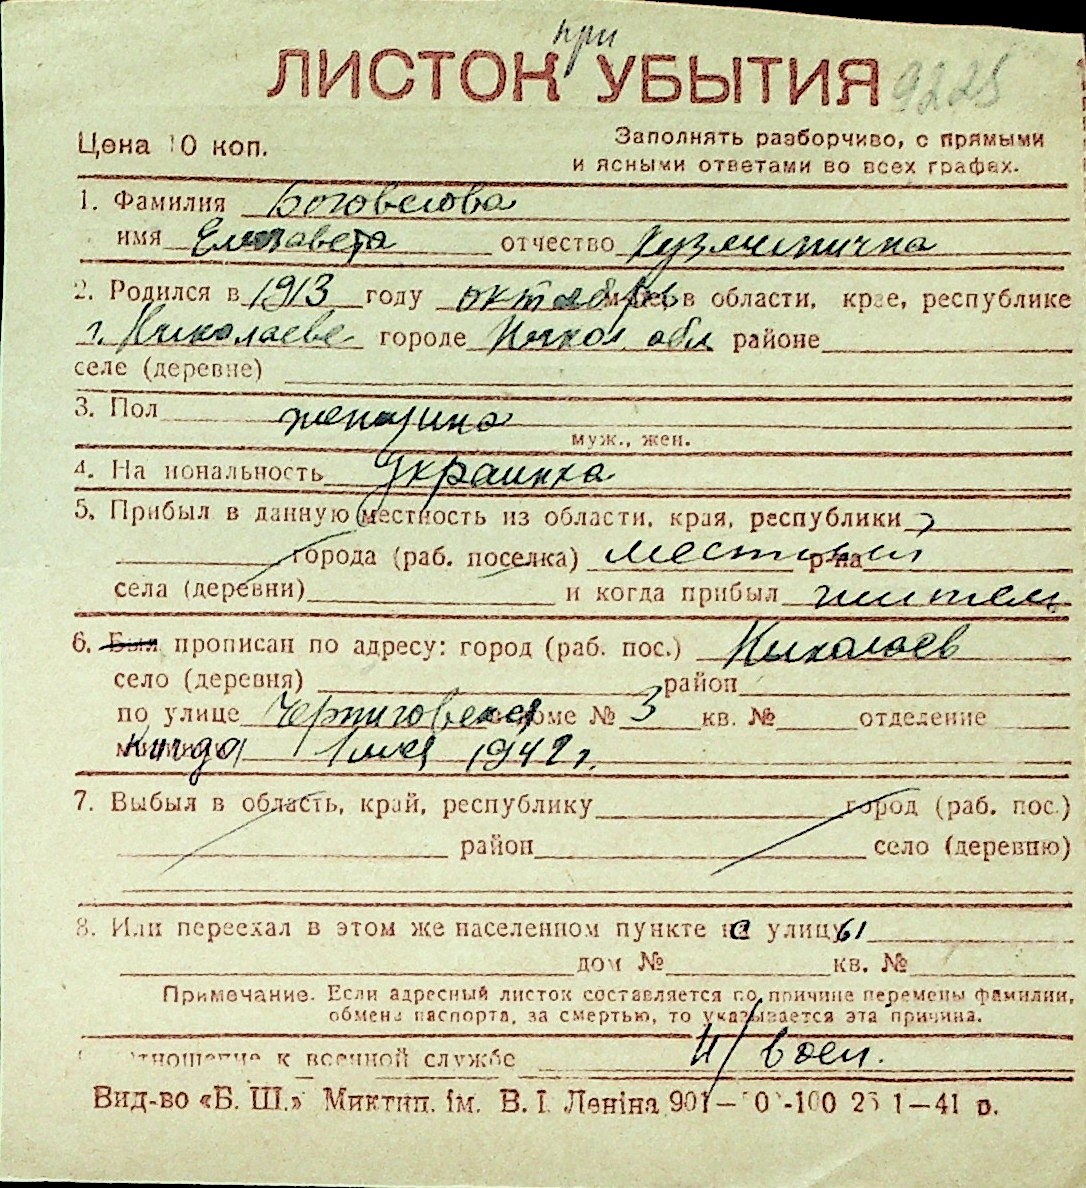 при
ЛИСТОК УБЫТИЯ 9225
Цена 10 коп.
Заполнять разборчиво, с прямыми
и ясными ответами во всех графах.
1. Фамилия
имя Елизавета отчество Кузьминична
2. Родился в 1913 году октябрь м-це в области, крае, республике
г. Николаеве городе Никол. обл районе
селе (деревне)
3. Пол женщина
муж., жен.
4. На иональность Украинка
5. Прибыл в данную местность из области, края, республики
города (раб. поселка) местный р-на
села (деревни) и когда прибыл житель
6. Был прописан по адресу: город (раб. пос.) Николаев
село (деревня) район
по улице Черниговская доме № 3 кв. № отделение
когда 1 мая 1942 г.
7. Выбыл в область, край, республику город (раб. пос.)
район село (деревню)
8. Или переехал в этом же населенном пункте с улицы
дом № кв. №
Примечание. Если адресный листок составляется по причине перемены фамилии,
обмена паспорта, за смертью, то указывается эта причина.
тношение к военной службе н/воен.
Вид-во «Б. Ш.» Миктип. ім. В. І. Леніна 1—41 р.